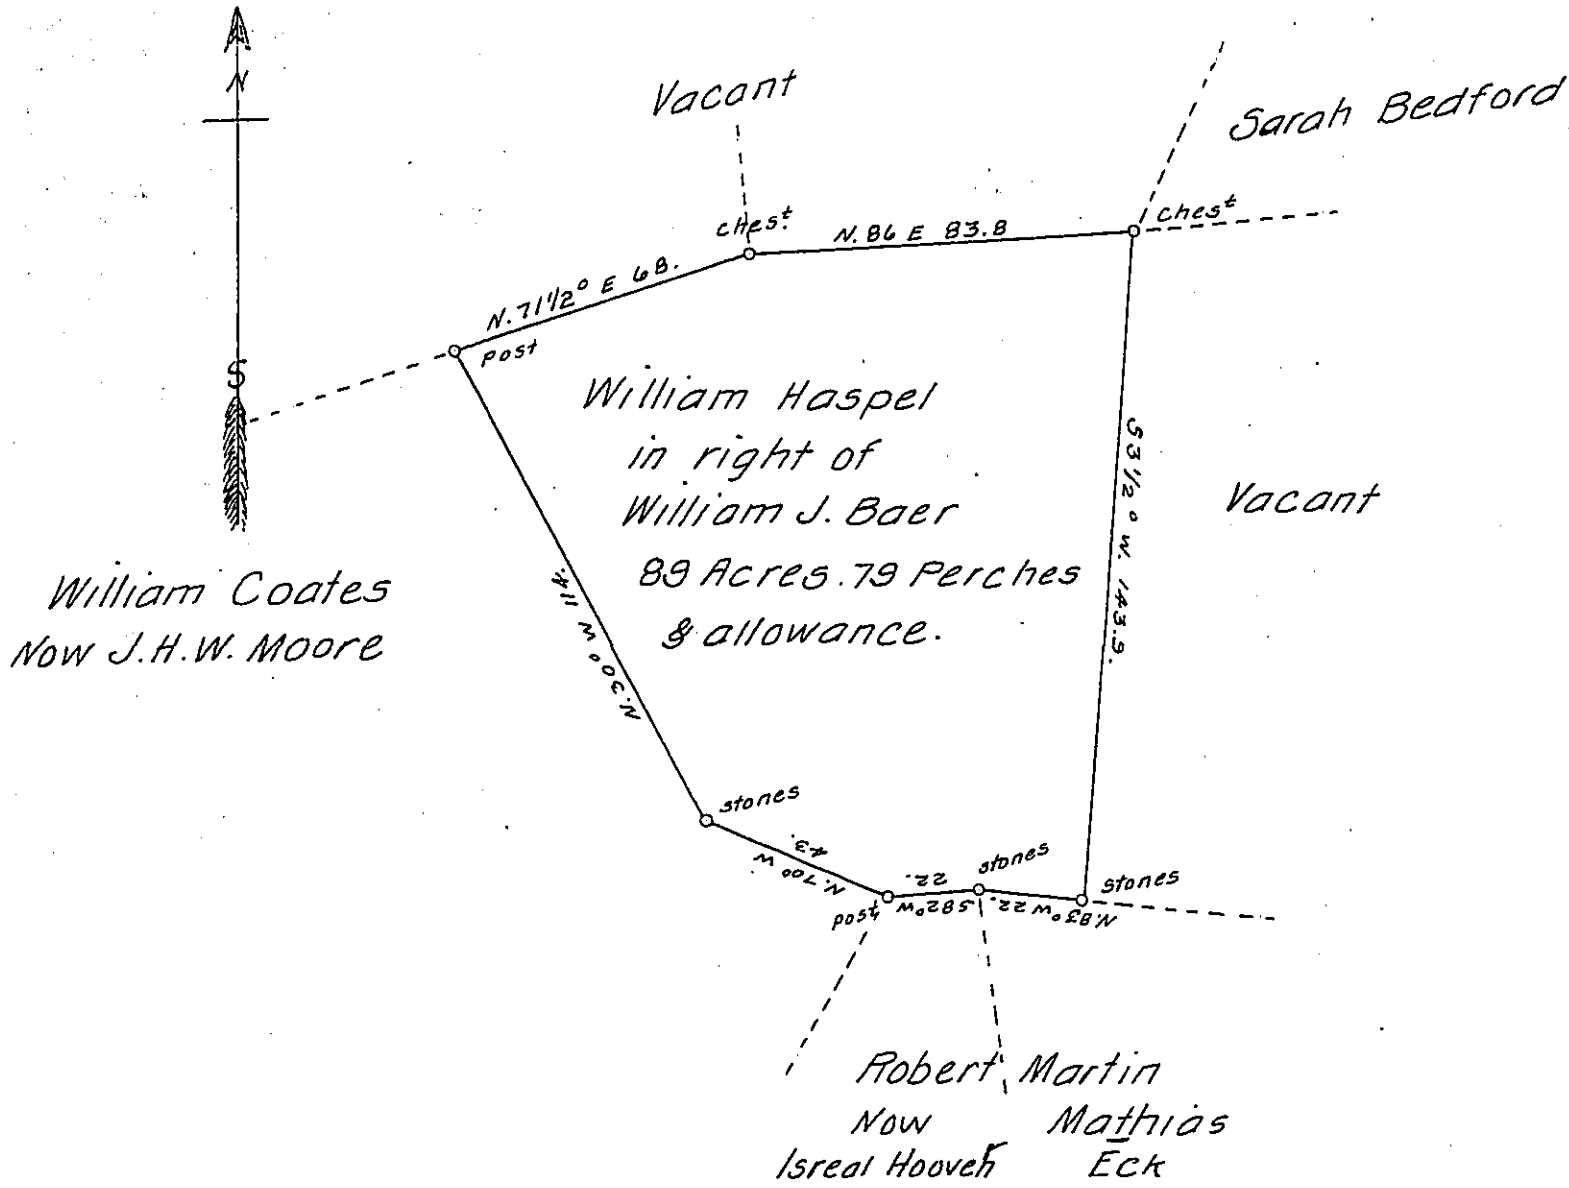 N
Vacant
Sarah Bedford
ches.t
N. 86 E 83.8
chest
N. 71 1/2° E 68.
post
S
William Haspel
in right of
William J. Baer
89 Acres. 79 Perches
& allowance.
S3 1/2° W. 143.9.
Vacant
William Coates
Now J.H.W. Moore
N. 30° W 114.
stones
N. 70° W 43.
post
S82°W 22.
stones
N. 83° W 22.
stones
Robert Martin
Now Mathias
Isreal Hoover Eck